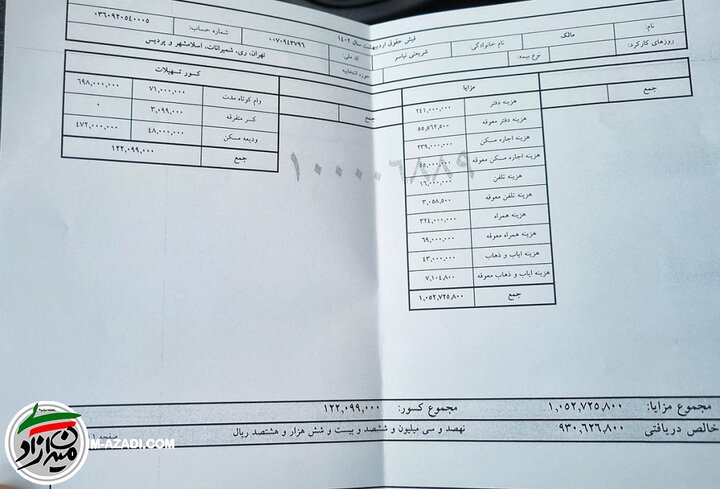 فیش حقوق اردیبهشت سال ۱۴۰۲
نام: مالک نام خانوادگی: شریعتی نیاسر کد ملی: ۰۰۷۰۹۴۳۷۹۶ شماره حساب: ۰۳۶۰۹۲۰۵۴۰۰۰۵
روزهای کارکرد: نوع بیمه: حوزه انتخابیه تهران، ری، شمیرانات، اسلامشهر و پردیس
جمع
مزایا
هزینه دفتر ۲۴۱,۰۰۰,۰۰۰
هزینه دفتر معوقه ۵۵,۵۶۲,۵۰۰
هزینه اجاره مسکن ۲۳۹,۰۰۰,۰۰۰
هزینه اجاره مسکن معوقه ۵۵,۰۰۰,۰۰۰
هزینه تلفن ۱۶,۰۰۰,۰۰۰
هزینه تلفن معوقه ۳,۰۵۸,۵۰۰
هزینه همراه ۳۲۴,۰۰۰,۰۰۰
هزینه همراه معوقه ۶۹,۰۰۰,۰۰۰
هزینه ایاب و ذهاب ۴۳,۰۰۰,۰۰۰
هزینه ایاب و ذهاب معوقه ۷,۱۰۴,۸۰۰
جمع ۱,۰۵۲,۷۲۵,۸۰۰
جمع
کسور تسهیلات
وام کوتاه مدت ۷۱,۰۰۰,۰۰۰ ۶۹۸,۰۰۰,۰۰۰
کسر متفرقه ۳,۰۹۹,۰۰۰ ۰
ودیعه مسکن ۴۸,۰۰۰,۰۰۰ ۴۷۲,۰۰۰,۰۰۰
جمع ۱۲۲,۰۹۹,۰۰۰
۱۰۰۰۰۶۸۸۹
مجموع مزایا: ۱,۰۵۲,۷۲۵,۸۰۰ مجموع کسور: ۱۲۲,۰۹۹,۰۰۰
خالص دریافتی ۹۳۰,۶۲۶,۸۰۰ نهصد و سی میلیون و ششصد و بیست و شش هزار و هشتصد ریال
صفحه ۱
میدان آزادی
M-AZADI.COM